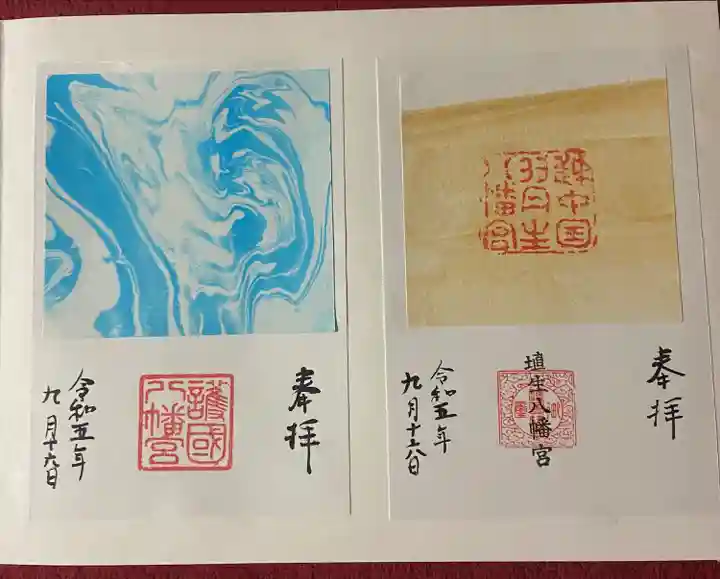 奉拝
護國
八幡宮
令和五年
九月十六日
越中国
羽生
八幡宮
奉拝
埴生八幡宮
令和五年
九月十六日